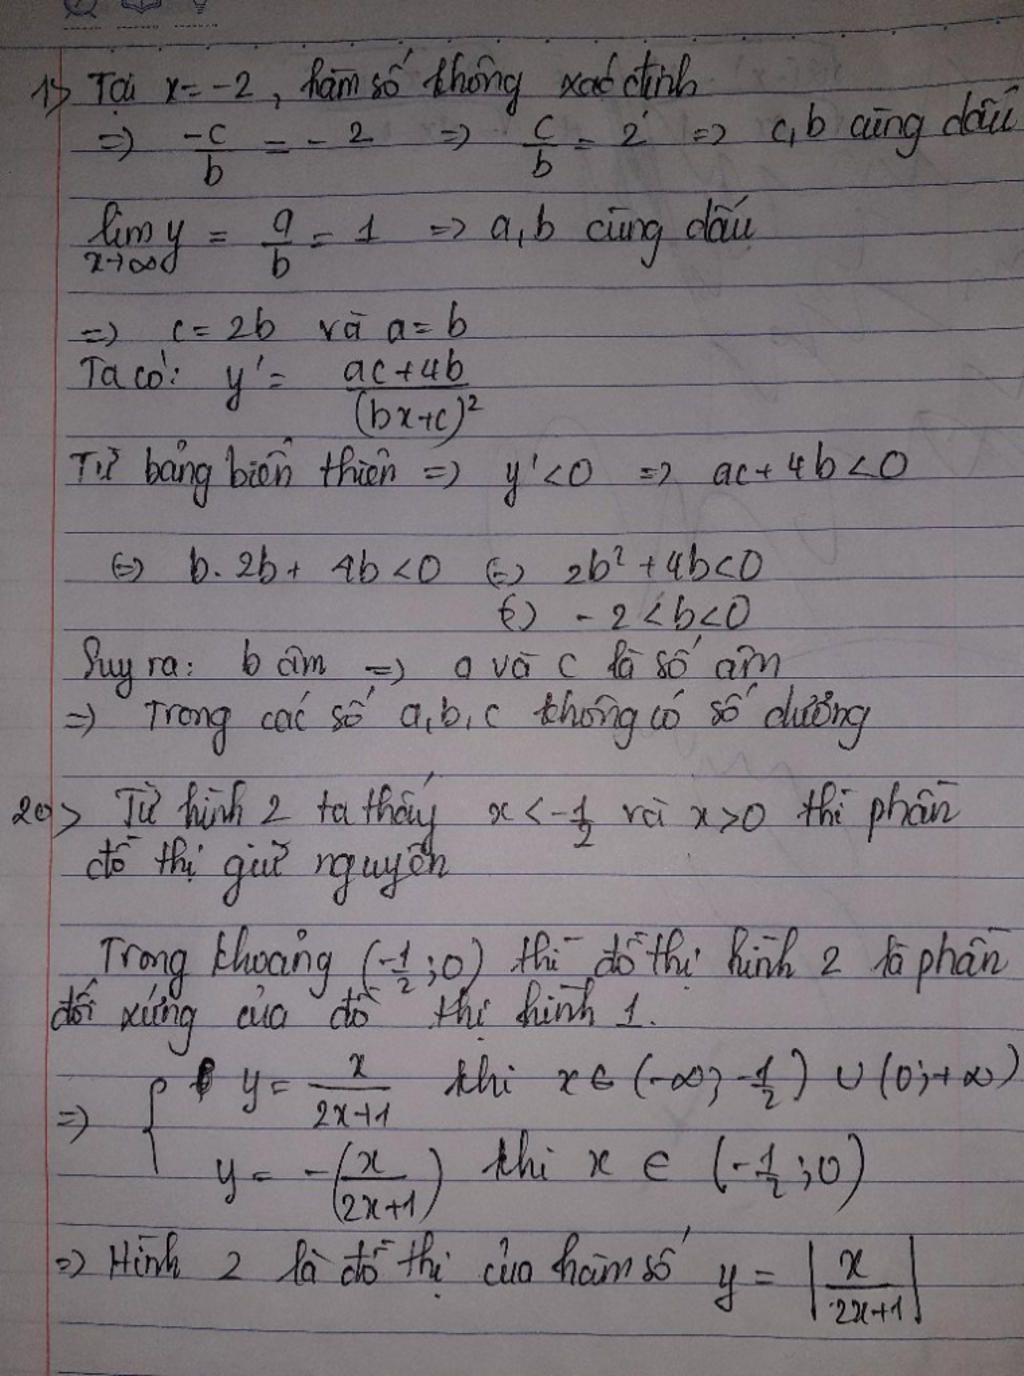 1> Tại x = -2, hàm số không xác định
=> -c/b = -2 => c/b = 2 => c, b cùng dấu
lim y = a/b = 1 => a, b cùng dấu
x→∞
=> c = 2b và a = b
Ta có: y' = ac+4b/(bx+c)²
Từ bảng biến thiên => y' < 0 => ac + 4b < 0
(=) b.2b + 4b < 0 (=) 2b² + 4b < 0
(=) -2 < b < 0
Suy ra: b âm => a và c là số âm
=> Trong các số a, b, c không có số dương
20> Từ hình 2 ta thấy x < -1/2 và x > 0 thì phần
đồ thị giữ nguyên
Trong khoảng (-1/2; 0) thì đồ thị hình 2 là phần
đối xứng của đồ thị hình 1.
=> { y = x/2x+1 khi x ∈ (-∞; -1/2) ∪ (0; +∞)
y = -(x/2x+1) khi x ∈ (-1/2; 0)
=> Hình 2 là đồ thị của hàm số y = |x/2x+1|